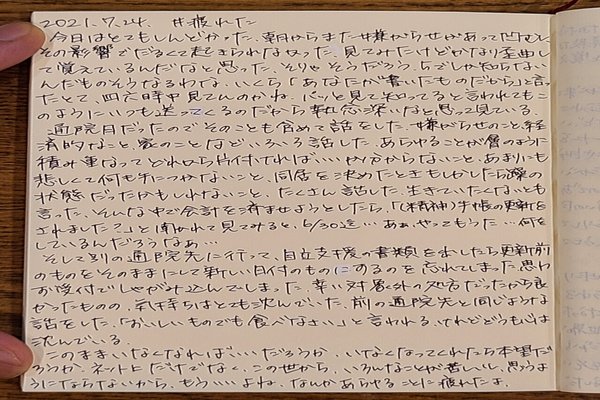 2021.7.24. #疲れた
今日はとてもしんどかった、朝からまた嫌がらせがあって凹む
その影響でだるくて起きられなかった、見てみたけどかなり歪曲し
て覚えているんだなと思った、そりゃそうだろう、らしか知らない
んだものそうなるわな、いくら「あなたが書いたものだから」と言っ
たとて、四六時中見てんのかね、パッと見て知ってると言われてもこ
のようにいつも送ってくるのだから執念深いなと思って見ている
通院日だったのでそのことも含めて話をした、嫌がらせのこと、経
済的なこと、家のことなどいろいろ話した、あらゆることが層のように
積み重なってどれから片付ければ…やり方からないこと、あまりにも
悲しくて何も手につかないこと、同居を決めたときもしかしたら躁の
状態だったかもしれないこと、たくさん話した、生きていたくないとも
言った、そんな中で会計を済ませようとしたら、「(精神)手帳の更新を
されました?」と聞かれて見てみると、6/30迄…あぁ、やってもうた…何を
しているんだろうなぁ…
そして別の通院先に行って、自立支援の書類を出したら更新前
のものをそのままにして新しい日付のものにするのを忘れてしまった、思わ
ず受付でしゃがみ込んでしまった、幸い対象外の処方だったから良
かったものの、気持ちはとても沈んでいた、前の通院先と同じような
話をした、「おいしいものでも食べなさい」と言われる、けれどどうも心は
沈んでいる。
このままいなくなれば…いいだろうか、いなくなってくれたら本望だ
ろうか、ネット上だけでなく、この世から、いろんなことが苦しいし、思うよう
にならないから、もう……よね、なんかあらゆることに疲れたよ、